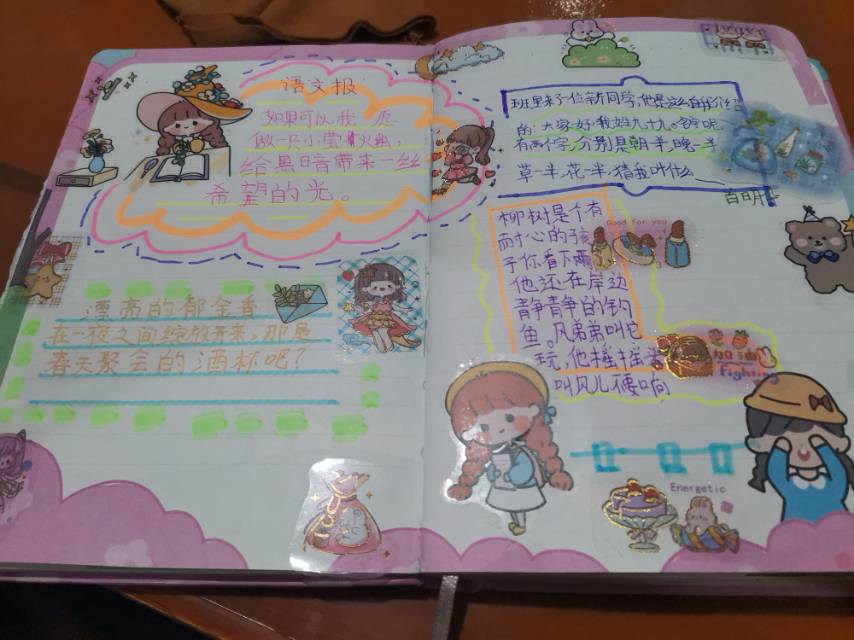 语文报
如果可以,我愿
做一只小萤火虫,
给黑暗带来一丝
希望的光。
漂亮的郁金香
在一夜之间绽放开来,那是
春天聚会的酒杯吧?
班里来了一位新同学,他是这么自我介绍
的:大家好,我姓九十九。名字呢
有两个字,分别是朝一半,晚一半
草一半,花一半,猜我叫什么
白明花
柳树是个有
耐心的孩
子你看下雨
他还在岸边
静静的钓
鱼。风弟弟叫它
玩,他摇摇头
叫风儿不要响
Good for you
加油
Fighting
Energetic